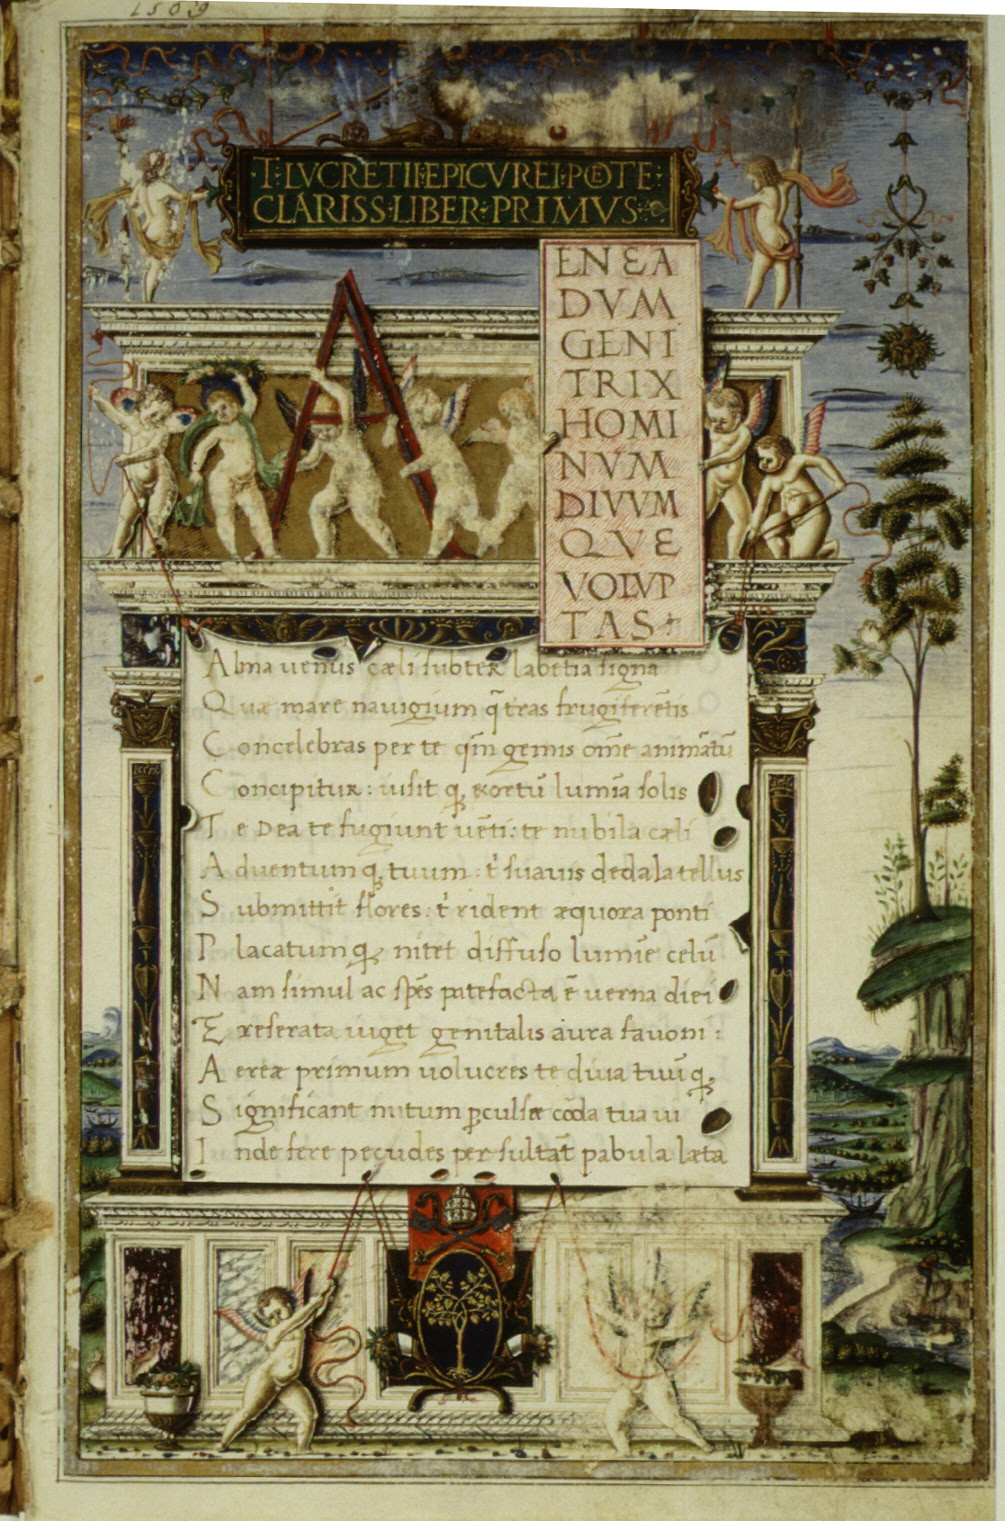 1509
·T·LVCRETII·EPICVREI·POETE·
CLARISS·LIBER·PRIMVS·
A
ENEA
DVM
GENI
TRIX
HOMI
NVM
DIVVM
QVE
VOLVP
TAS
Alma venus cæli subter labētia signa
Quæ mare navigium q̄ tras frugiferētis
Concelebras per te qm̄ genus om̄e animātū
Concipitur: uisit q; exortū lumīa solis
Te Dea te fugiunt uēti: te nubila cæli
Aduentumq; tuum: t' suauis dedala tellus
Submittit flores: t' rident æquora ponti
Placatumq; nitet diffuso lumīe celū
Nam simul ac spēs patefacta ē verna diei
Et reserata uiget genitalis aura favoni:
Aereæ primum uolucres te diua tuūq;
Significant initum ꝑculsæ cōda tua ui
Inde fere pecudes per sultāt pabula læta